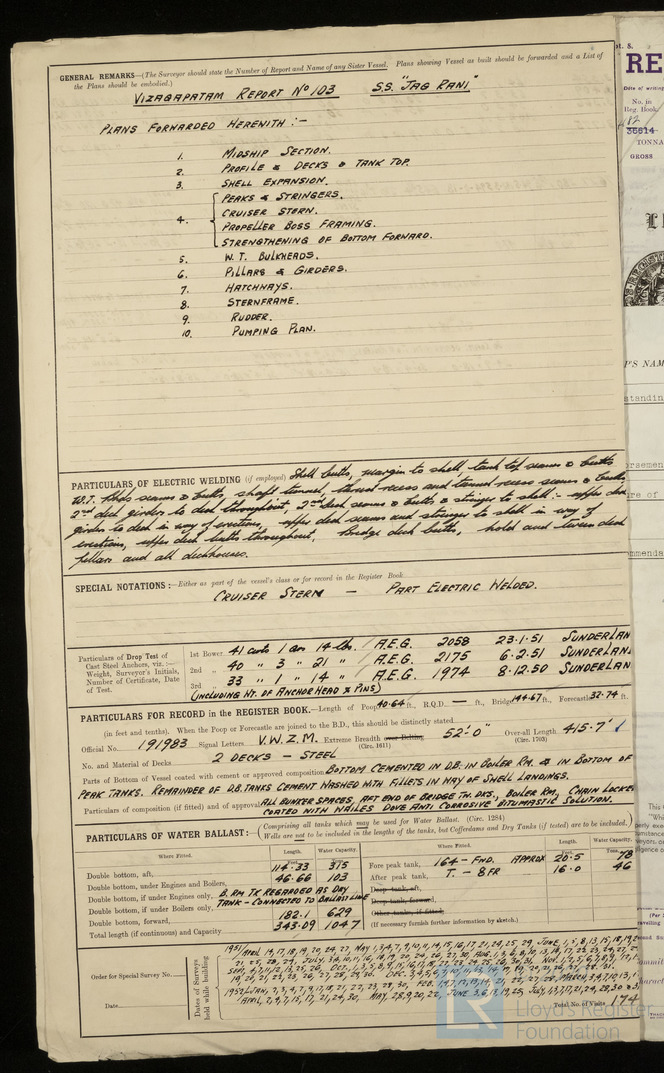 GENERAL REMARKS—(The Surveyor should state the Number of Report and Name of any Sister Vessel. Plans showing Vessel as built should be forwarded and a List of
the Plans should be embodied.)
VIZAGAPATAM REPORT No 103 S.S. "JAG RANI"
PLANS FORWARDED HEREWITH :-
1. MIDSHIP SECTION.
2. PROFILE & DECKS & TANK TOP.
3. SHELL EXPANSION.
4. PEAKS & STRINGERS.
CRUISER STERN.
PROPELLER BOSS FRAMING.
STRENGTHENING OF BOTTOM FORWARD.
5. W.T. BULKHEADS.
6. PILLARS & GIRDERS.
7. HATCHWAYS.
8. STERNFRAME.
9. RUDDER.
10. PUMPING PLAN.
PARTICULARS OF ELECTRIC WELDING (if employed) Shell butts, margin to shell, tank top seams & butts
W.T. Bhds seams & butts, shaft tunnel, thrust recess and tunnel recess seams & butts,
2nd deck girder to deck throughout, 2nd deck seams & butts & stringer to shell :- upper deck
girder to deck in way of erections, upper deck seams and stringer to shell in way of
erections, upper deck butts throughout, bridge deck butts, hold and tween deck
pillars and all deckhouses.
SPECIAL NOTATIONS :—Either as part of the vessel's class or for record in the Register Book.
CRUISER STERN — PART ELECTRIC WELDED.
Particulars of Drop Test of
Cast Steel Anchors, viz. :—
Weight, Surveyor's Initials,
Number of Certificate, Date
of Test.
1st Bower 41 cwts 1 qr 14 lbs. / A.E.G. 2058 23.1.51 SUNDERLAN
2nd " 40 " 3 " 21 " / A.E.G. 2175 6.2.51 SUNDERLAN
3rd " 33 " 1 " 14 " / A.E.G. 1974 8.12.50 SUNDERLAN
(INCLUDING WT. OF ANCHOR HEAD & PINS)
PARTICULARS FOR RECORD in the REGISTER BOOK.—Length of Poop 40.64 ft., R.Q.D. — ft., Bridge 144.67 ft., Forecastle 32.74 ft.
(in feet and tenths). When the Poop or Forecastle are joined to the B.D., this should be distinctly stated
Official No. 191983 Signal Letters V.W.Z.M. Extreme Breadth over Belting (Circ. 1611) 52'.0" Over-all Length (Circ. 1703) 415.7'
No. and Material of Decks 2 DECKS — STEEL
Parts of Bottom of Vessel coated with cement or approved composition BOTTOM CEMENTED IN D.B. IN BOILER RM. & IN BOTTOM OF
PEAK TANKS. REMAINDER OF D.B. TANKS CEMENT WASHED WITH FILLETS IN WAY OF SHELL LANDINGS.
Particulars of composition (if fitted) and of approval ALL BUNKER SPACES, AFT END OF BRIDGE TW. DKS., BOILER RM., CHAIN LOCKE
COATED WITH WAILES DOVE ANTI CORROSIVE BITUMASTIC SOLUTION.
PARTICULARS OF WATER BALLAST :—(Comprising all tanks which may be used for Water Ballast. (Circ. 1284)
Wells are not to be included in the lengths of the tanks, but Cofferdams and Dry Tanks (if tested) are to be included.)
Where Fitted. Length. Water Capacity. Where Fitted. Length. Water Capacity.
Double bottom, aft, 114.33 375 Fore peak tank, 164 - FWD. APPROX 20.5 78
Double bottom, under Engines and Boilers, 46.66 103 After peak tank, T. - 8FR 16.0 46
Double bottom, if under Engines only, B. RM TK REGARDED AS DRY Deep tank, aft,
Double bottom, if under Boilers only, TANK - CONNECTED TO BALLAST LINE Deep tank, forward,
Double bottom, forward, 182.1 629 Other tanks, if fitted,
Total length (if continuous) and Capacity 343.09 1047 (If necessary furnish further information by sketch.)
Order for Special Survey No.
Date
Dates of Surveys held while building
1951/ APRIL
1952/ JAN,
Total No. of Visits 174
Lloyd's Register
Foundation
RE
Date of writing
No. in
Reg. Book
36614
TONNA
GROSS